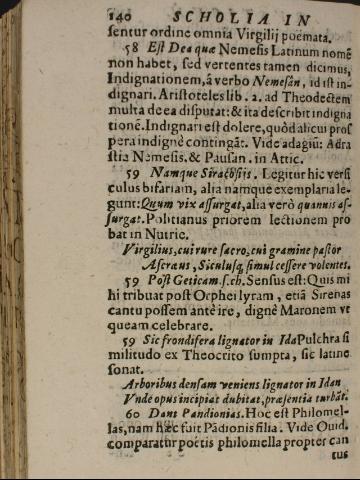 140 SCHOLIA IN
sentur ordine omnia Virgilij poëmata.
58 Est Dea quæ Nemesis Latinum nomē
non habet, sed vertentes tamen dicimus,
Indignationem, à verbo Nemesân, id est in-
dignari. Aristoteles lib. 2. ad Theodectem
multa de ea disputat: & ita describit indigna
tionē. Indignari est dolere, quòd alicui pros
pera indignè contingāt. Vide adagiū: Adra
stia Nemesis. & Pausan. in Attic.
59 Namque Siracosijs. Legitur hic versi
culus bifariam, alia namque exemplaria le-
gunt: Quum vix assurgat, alia verò quamuis as-
surgat. Politianus priorem lectionem pro
bat in Nutrie.
Virgilius, cui rure sacro, cui gramine pastor
Ascræus, Siculusq; simul cessere volentes.
59 Post Geticam. s. ch. Sensus est: Quis mi
hi tribuat post Orphei lyram, etiā Sirenas
cantu possem antè ire, dignè Maronem vt
queam celebrare.
59 Sic frondifera lignator in Ida Pulchra si
militudo ex Theocrito sumpta, sic latine
sonat.
Arboribus densam veniens lignator in Idan
Vnde opus incipiat dubitat, præsentia turbāt.
60 Dant Pandionias. Hoc est Philomel-
las, nam hæc fuit Pādionis filia. Vide Ouid.
comparatur poëtis philomella propter can
tus